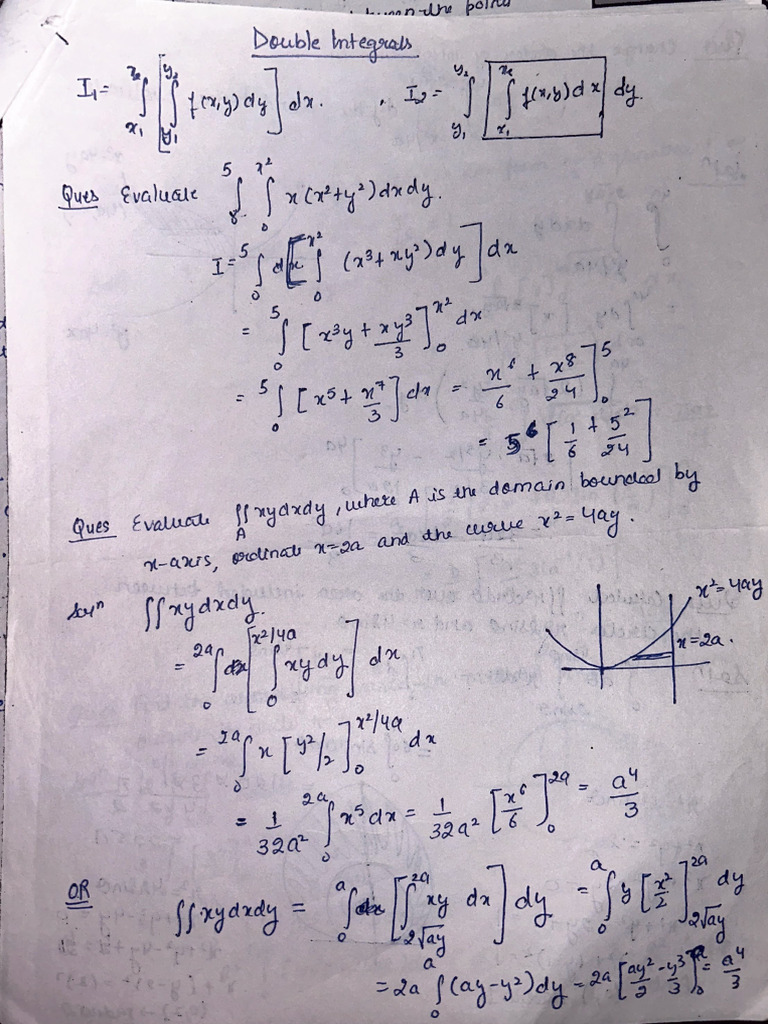 between the points
Double Integrals
I₁ = ∫_{x₁}^{x₂} [ ∫_{y₁}^{y₂} f(x,y) dy ] dx. , I₂ = ∫_{y₁}^{y₂} [ ∫_{x₁}^{x₂} f(x,y) dx ] dy.
Ques Evaluate ∫_{0}^{5} ∫_{0}^{x²} x(x²+y²) dx dy.
I = ∫_{0}^{5} [ ∫_{0}^{x²} (x³+xy²) dy ] dx
= ∫_{0}^{5} [ x³y + xy³/3 ]_{0}^{x²} dx
= ∫_{0}^{5} [ x⁵ + x⁷/3 ] dx = x⁶/6 + x⁸/24 ]_{0}^{5}
= 5⁶ [ 1/6 + 5²/24 ]
Ques Evaluate ∬_A xy dx dy, where A is the domain bounded by
x-axis, ordinate x=2a and the curve x²=4ay.
Solⁿ ∬ xy dx dy.
x²=4ay
x=2a.
= ∫_{0}^{2a} [ ∫_{0}^{x²/4a} xy dy ] dx
= ∫_{0}^{2a} x [ y²/2 ]_{0}^{x²/4a} dx
= 1/32a² ∫_{0}^{2a} x⁵ dx = 1/32a² [ x⁶/6 ]_{0}^{2a} = a⁴/3
OR
∬ xy dx dy = ∫_{0}^{a} [ ∫_{2√ay}^{2a} xy dx ] dy = ∫_{0}^{a} y [ x²/2 ]_{2√ay}^{2a} dy
= 2a ∫_{0}^{a} (ay-y²) dy = 2a [ ay²/2 - y³/3 ]_{0}^{a} = a⁴/3